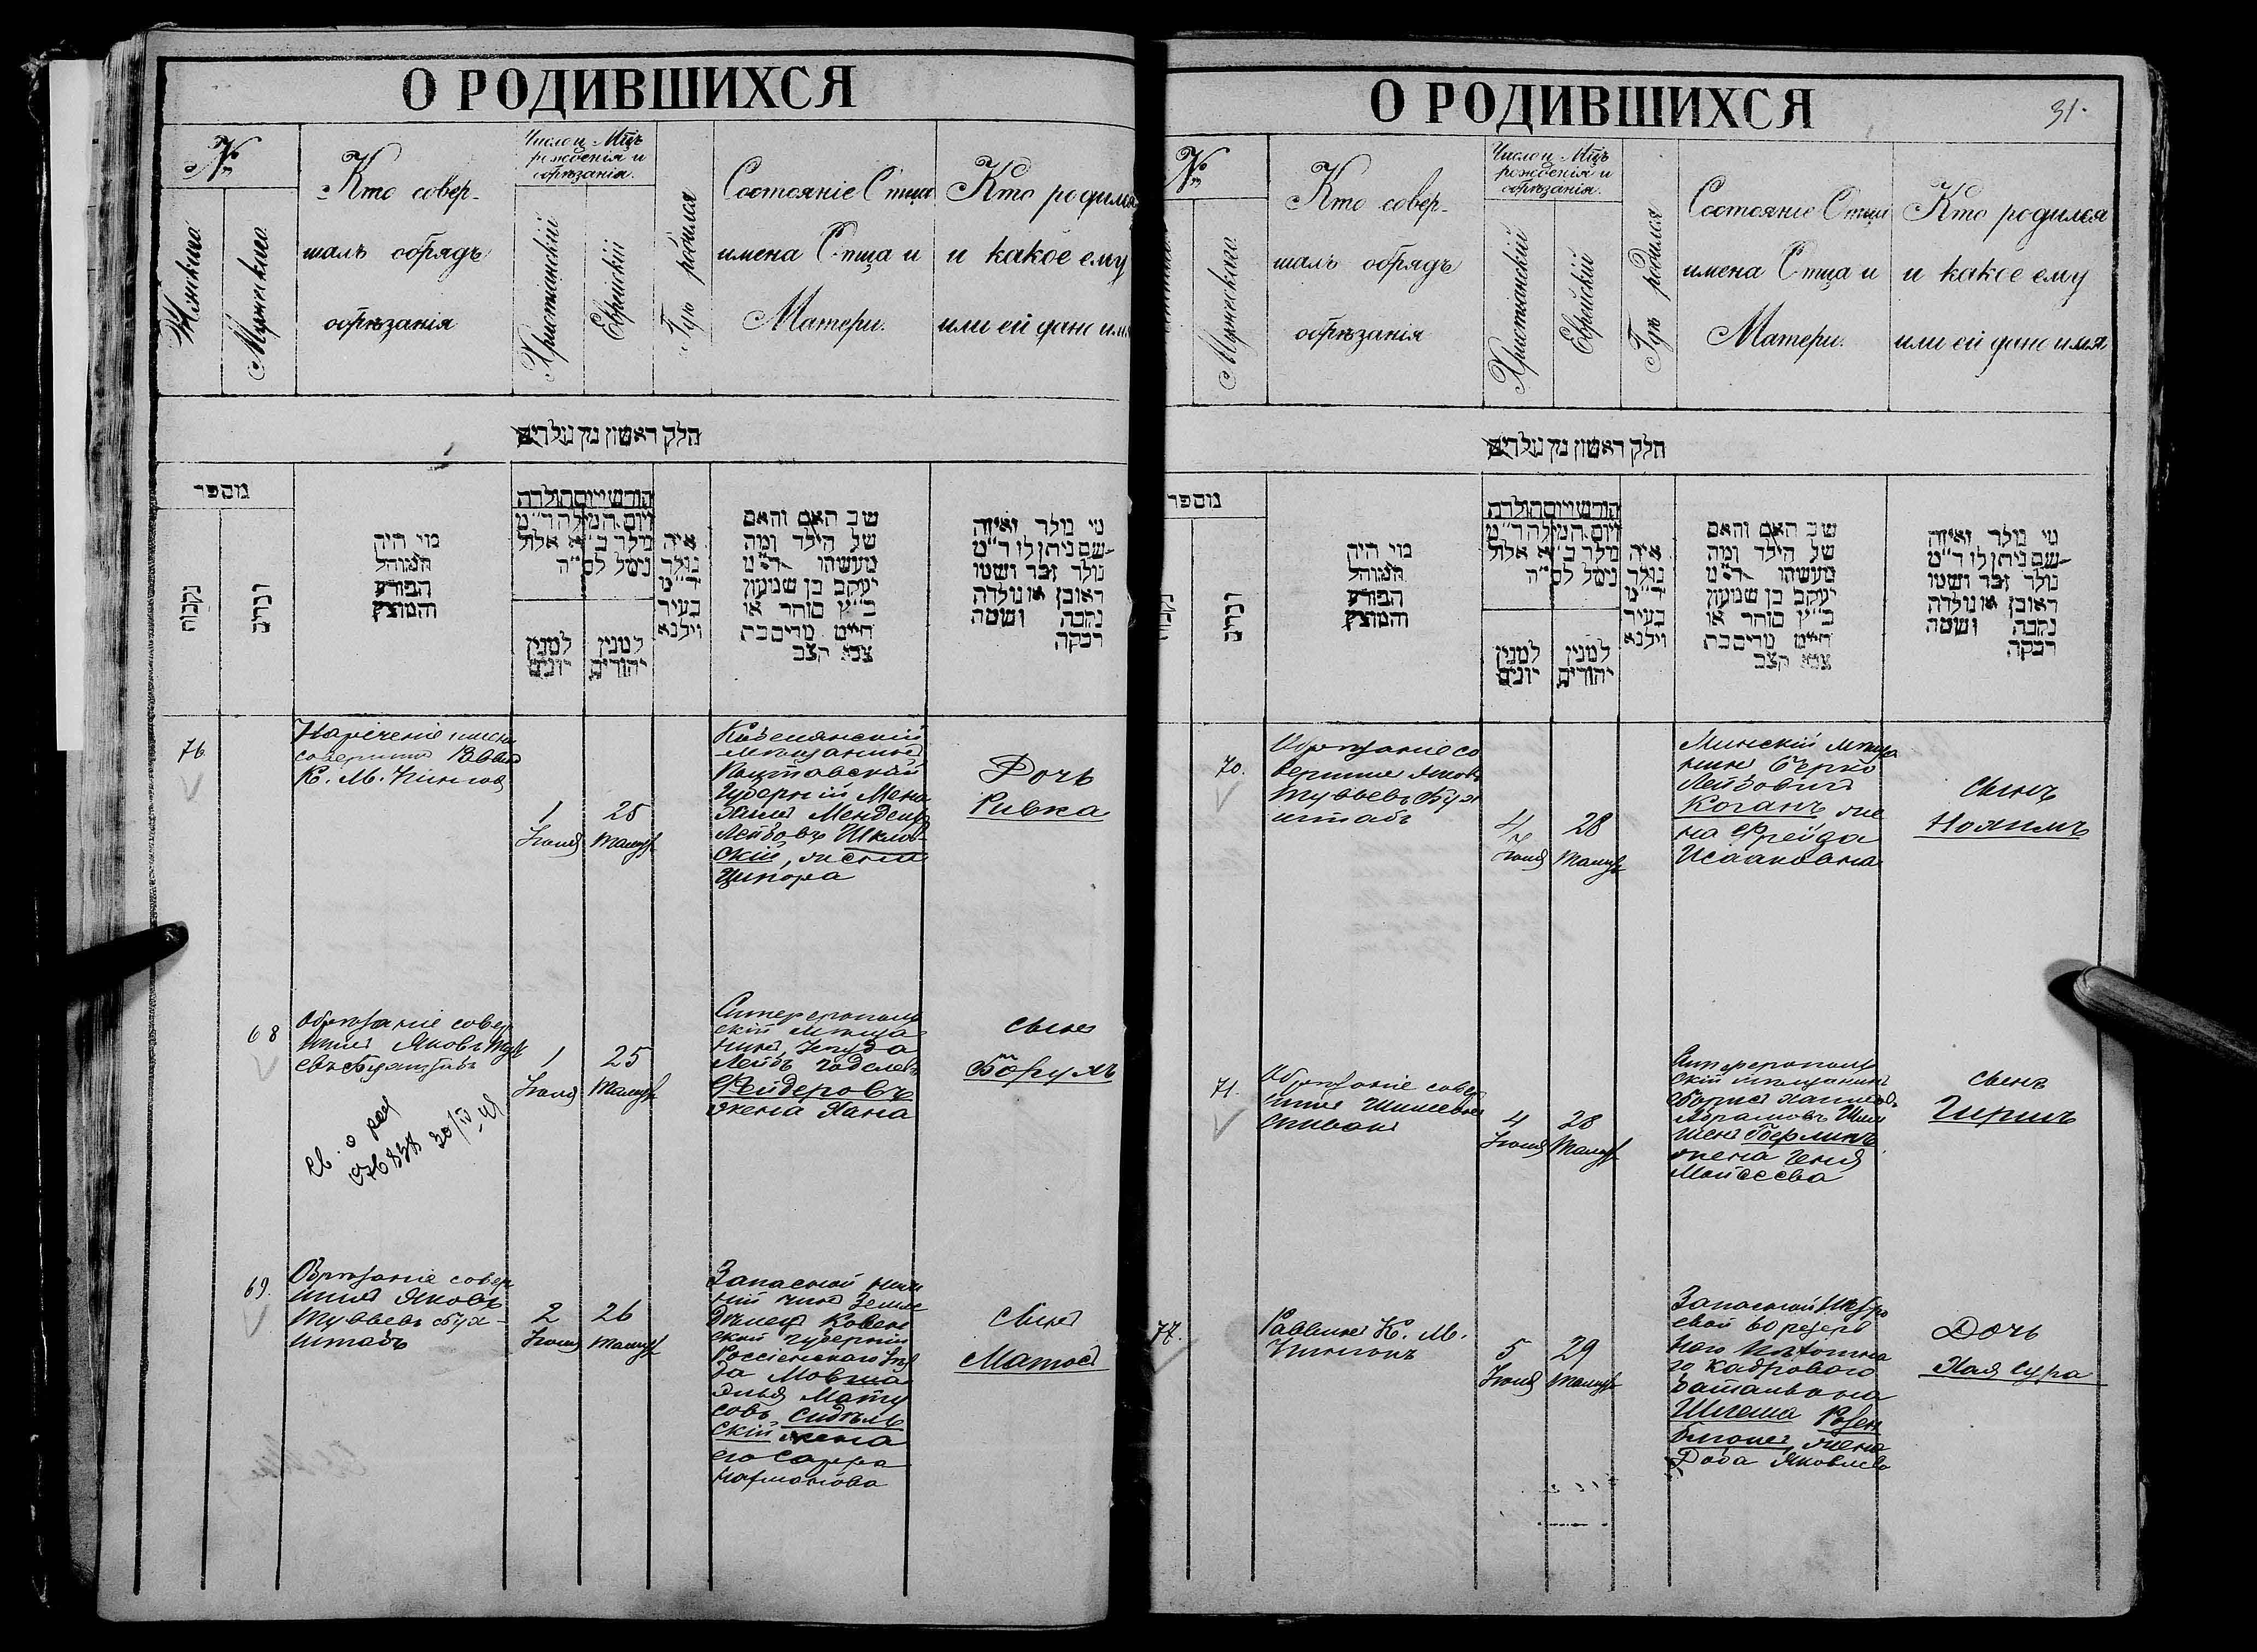 О РОДИВШИХСЯ
№
Женскаго
Мужескаго
Кто совер-
шалъ обрядъ
обрѣзанія
Число и Мцъ
рожденія и
обрѣзанія.
Христіанскій
Еврейскій
Гдѣ родился
Состояніе Отца
имена Отца и
Матери.
Кто родился
и какое ему
или ей дано имя
חלק ראשון מן נולדים
מספר
נקבות
זכרים
מוי היה
המוהל
הפורע
והמוצץ
חודש ויום תולדה
ויום המילה ר״מ
נולד ב׳ א אלול
נימל לס״ה
למנין
יונים
למנין
יהודים
איה
נולד
ד״מ
בעיר
וילנא
שם האב והאם
של הילד ומה
מעשהו ד״מ
יעקב בן שמעון
כ״ץ סוחר או
חייט מרים בת
צבי קצב
מי נולד ואיזה
שם ניתן לו ד״מ
נולד זכר ושמו
ראובן או נולדה
נקבה ושמה
רבקה
76
Нареченіе имени
совершилъ Раввинъ
К. М.
1
Іюля
25
Тамузъ
мѣщанинъ
Полтавской
Губерніи
Мендель
Лейбовъ Шклов
скій, жена
Ципора
Дочь
Ривка
68
Обрѣзаніе совер
шилъ Яковъ
1
Іюля
25
Тамузъ
Симферополь
скій мѣща
нинъ Іегуда
Лейбъ
Фейдеровъ
жена Хана
Сынъ
Борухъ
69.
Обрѣзаніе совер
шилъ Яковъ
Тувьевъ Бух
штабъ
2
Іюля
26
Тамузъ
Запасной ниж
ній чинъ
Ковен
ской губерніи
Россіенскаго уѣз
да Мовша
Эилья Мату
совъ Сидѣль
скій жена
его Сарра
Сынъ
Матусъ
О РОДИВШИХСЯ
31.
№
Мужескаго
Кто совер-
шалъ обрядъ
обрѣзанія
Число и Мцъ
рожденія и
обрѣзанія.
Христіанскій
Еврейскій
Гдѣ родился
Состояніе Отца
имена Отца и
Матери.
Кто родился
и какое ему
или ей дано имя
חלק ראשון מן נולדים
מספר
נקבות
זכרים
מוי היה
המוהל
הפורע
והמוצץ
חודש ויום תולדה
ויום המילה ר״מ
נולד ב׳ א אלול
נימל לס״ה
למנין
יונים
למנין
יהודים
איה
נולד
ד״מ
בעיר
וילנא
שם האב והאם
של הילד ומה
מעשהו ד״מ
יעקב בן שמעון
כ״ץ סוחר או
חייט מרים בת
צבי קצב
מי נולד ואיזה
שם ניתן לו ד״מ
נולד זכר ושמו
ראובן או נולדה
נקבה ושמה
רבקה
70.
Обрѣзаніе со
вершилъ Яковъ
Тувьевъ Бух
штабъ
Іюля
28
Тамузъ
Минскій мѣща
нинъ Берко
Лейбовичъ
Коганъ же
на Фрейда
Исааковна
Сынъ
Нохимъ
71.
Обрѣзаніе совер
шилъ
Спивакъ
4
Іюля
28
Тамузъ
Симферополь
скій мѣщанинъ
Абрамовъ
Берлинъ
жена Геня
Мойсеева
Сынъ
Гиршъ
77.
Раввинъ К. М.
5
Іюля
29
Тамузъ
Запасной
го кадроваго
баталіона
Розен
жена
Яковлева
Дочь
Хая Сура